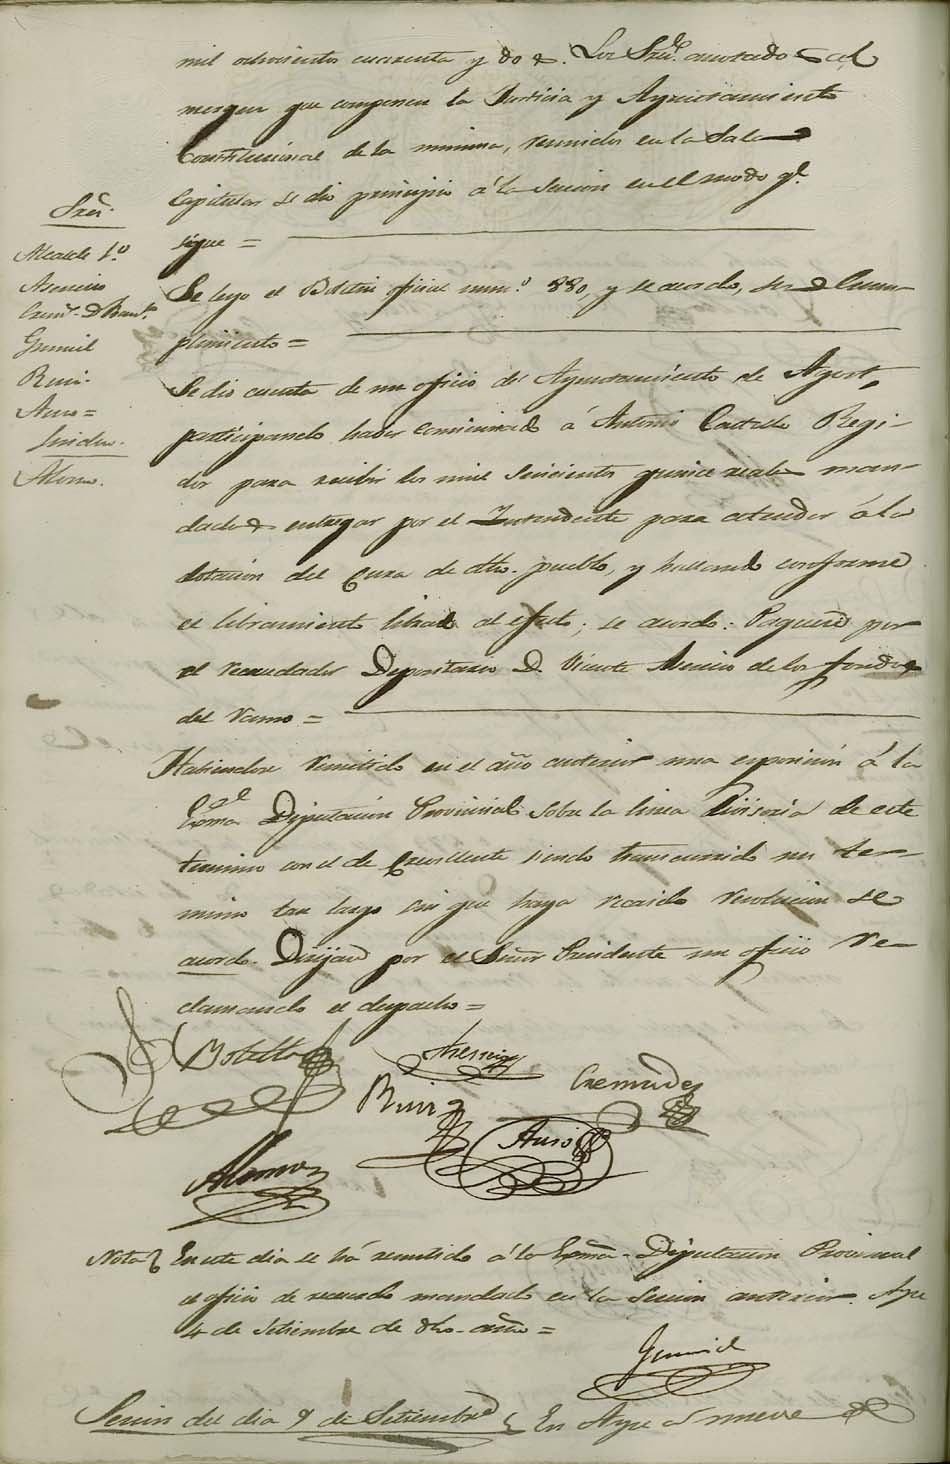 mil ochocientos cuarenta y dos. Los Sres. anotados al
margen que componen la Justicia y Ayuntamiento
Constitucional de la misma, reunidos en la Sala
Capitular se dio principio á la Sesion en el modo qe.
sigue =
Sres.
Alcalde 1.º
Asencio
Crem.s D. Bau.ta
Gumiel
Ruiz.
Auso =
Sindico.
Alonso.
Se leyo el Boletin oficial num.º 880, y se acordo, su Cum-
plimiento =
Se dio cuenta de un oficio del Ayuntamiento de Agost,
participando haber comisionado á Antonio Castello Regi-
dor para recibir los mil seiscientos quince reales man-
dados entregar por el Intendente para atender á la
dotacion del Cura de dho. pueblo, y hallando conforme
el libramiento librado al efecto; se acordo: Paguese por
el recaudador Depositario D. Vicente Asencio de los fondos
del ramo =
Habiendose remitido en el año anterior una esposicion á la
Exma. Diputacion Provincial sobre la linea divisoria de este
termino con el de Crevillente siendo transcurrido un ter-
mino tan largo sin que haya recaido resolucion se
acordo. Dirijase por el Señor Presidente un oficio re-
clamando el despacho =
Botella
Asencio
Cremades
Ruiz
Auso
Alonso
Nota En este dia se há remitido á la Exma. Diputacion Provincial
el oficio de recuerdo mandado en la Sesion anterior. Aspe
4 de Setiembre de dho. año =
Gumiel
Sesion del dia 9 de Setiembre En Aspe á nueve de